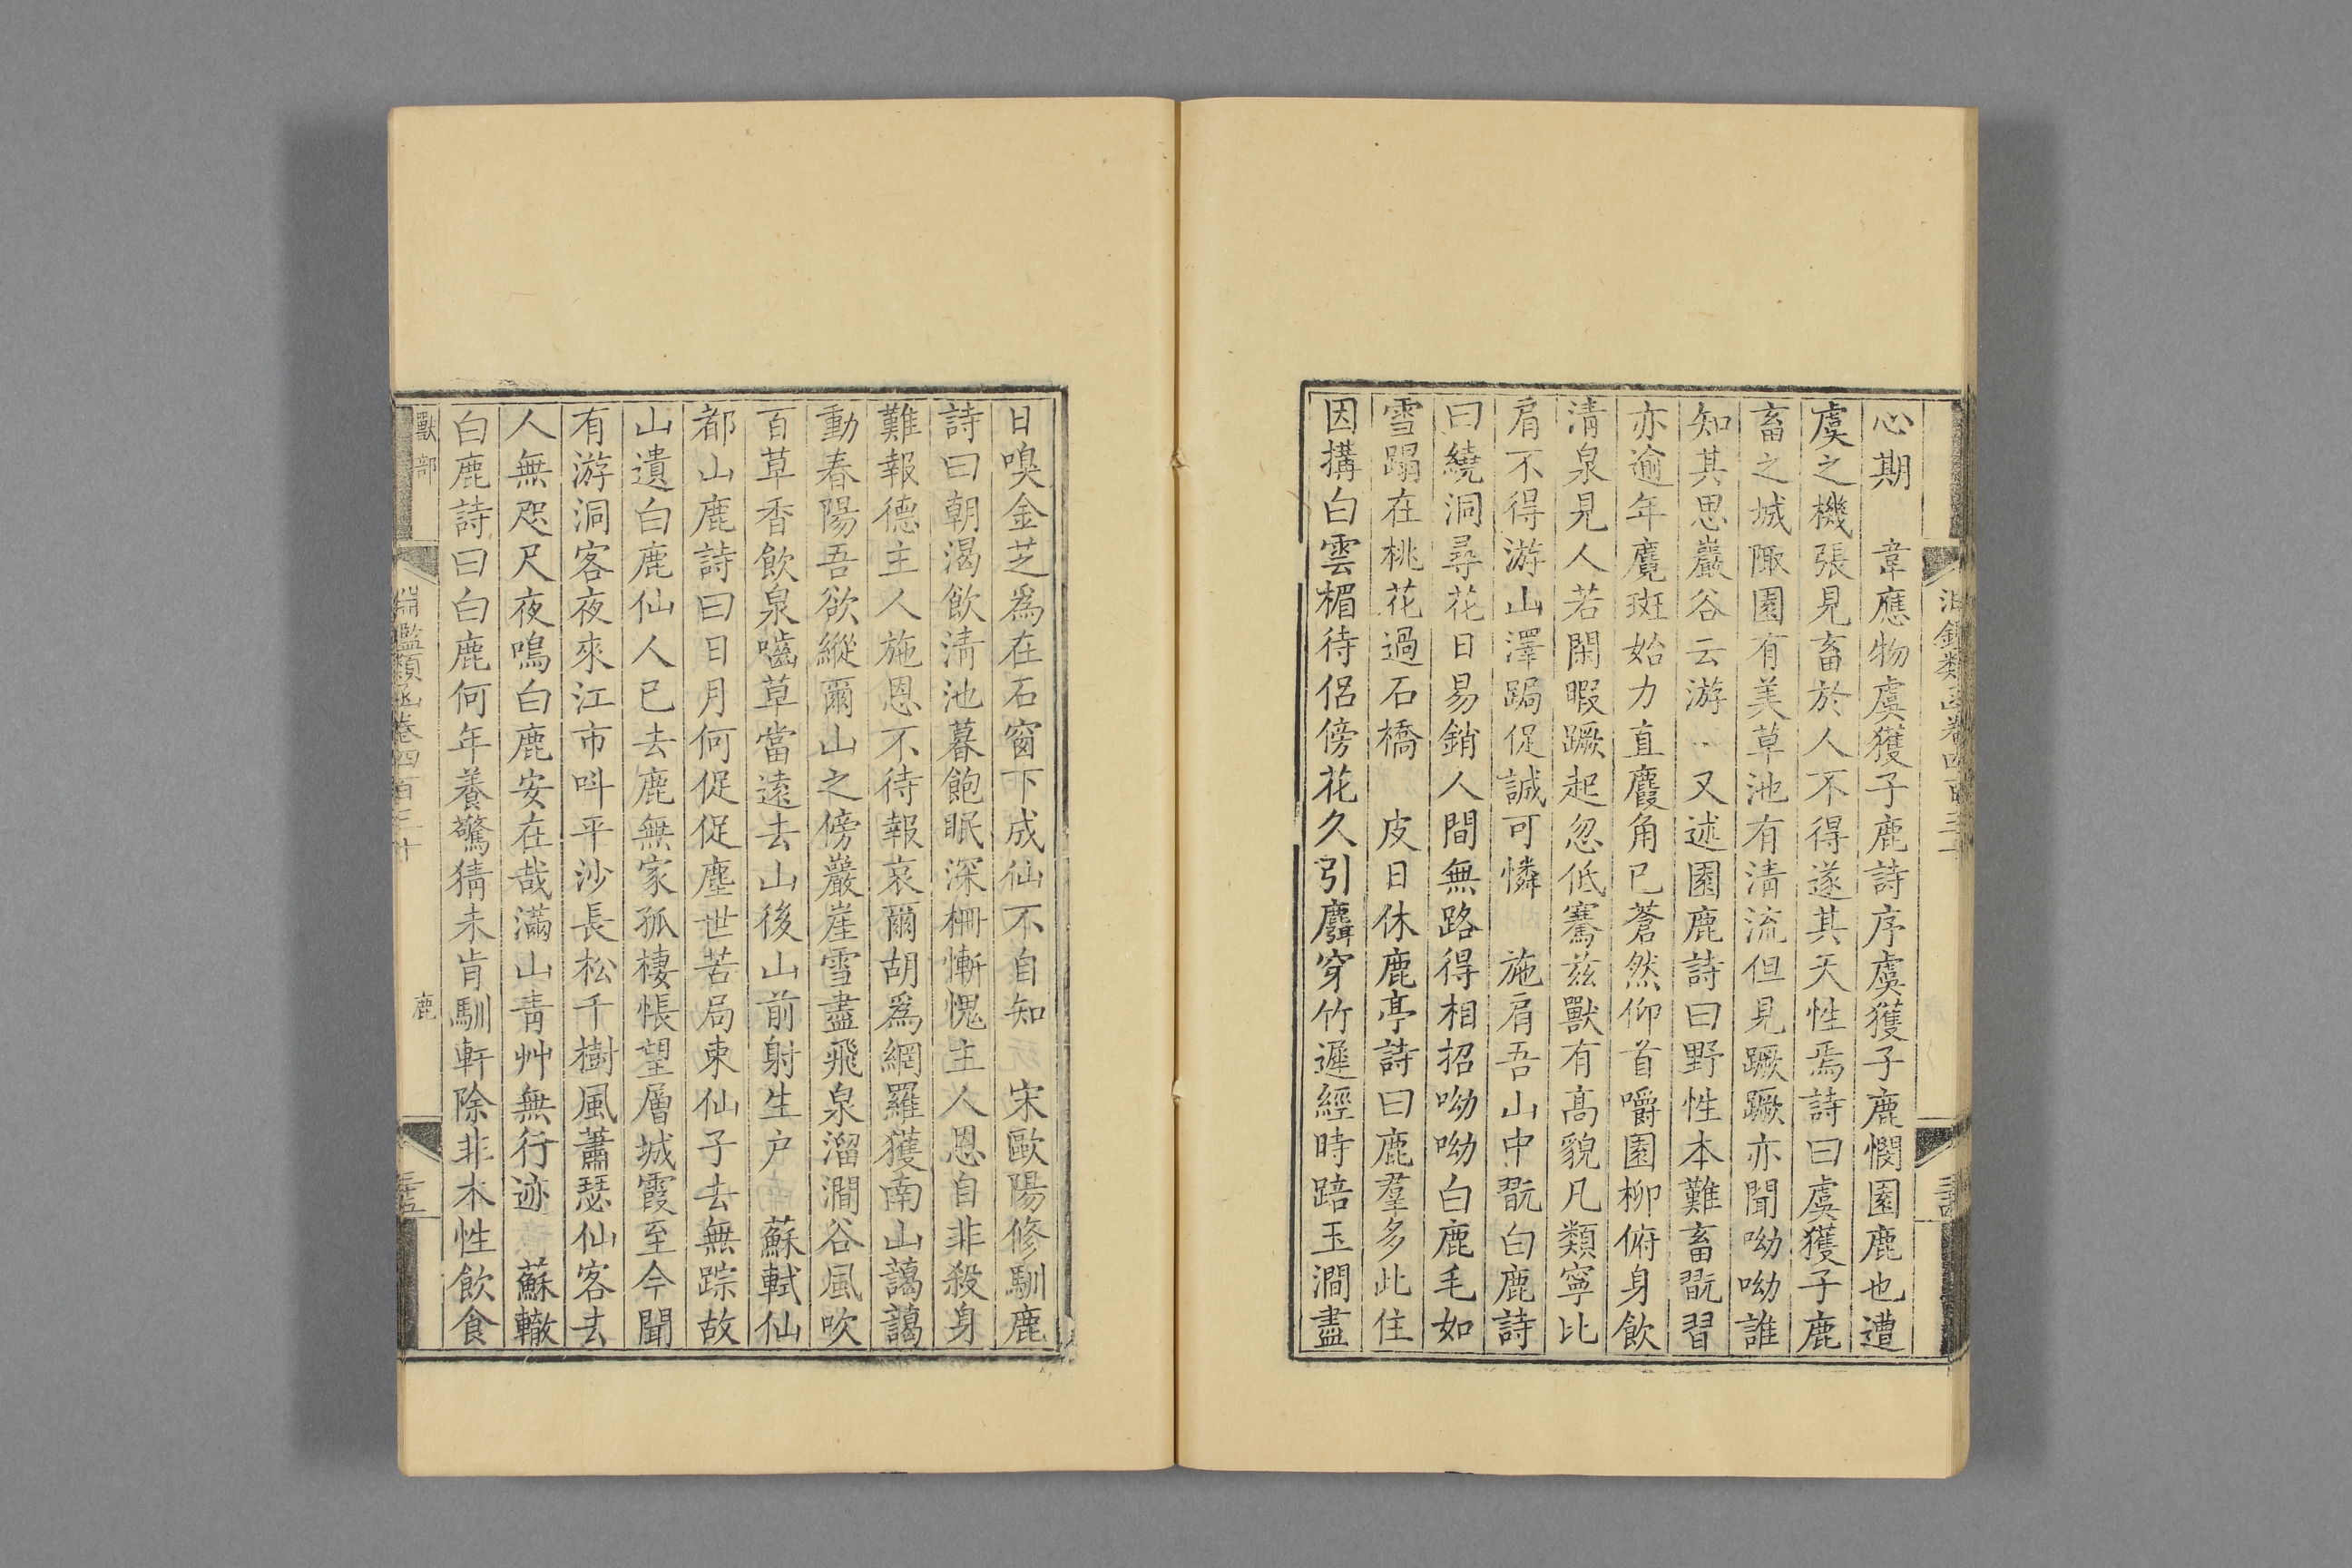 心期　韋應物虞獲子鹿詩序虞獲子鹿憫園鹿也遭
虞之機張見畜於人不得遂其天性焉詩曰虞獲子鹿
畜之城陬園有美草池有清流但見蹶蹶亦聞呦呦誰
知其思巖谷云游　又述園鹿詩曰野性本難畜翫習
亦逾年麑斑始力直麚角已蒼然仰首嚼園柳俯身飲
清泉見人若閑暇蹶起忽低騫茲獸有高貌凡類寧比
肩不得游山澤跼促誠可憐　施肩吾山中翫白鹿詩
曰繞洞尋花日易銷人間無路得相招呦呦白鹿毛如
雪蹋在桃花過石橋　皮日休鹿亭詩曰鹿羣多此住
因搆白雲楣待侶傍花久引麛穿竹遲經時踣玉澗盡
日嗅金芝爲在石窗下成仙不自知　宋歐陽修馴鹿
詩曰朝渴飲清池暮飽眠深柵慚愧主人恩自非殺身
難報德主人施恩不待報哀爾胡爲網羅獲南山藹藹
動春陽吾欲縱爾山之傍巖崖雪盡飛泉溜澗谷風吹
百草香飲泉嚙草當遠去山後山前射生户　蘇軾仙
都山鹿詩曰日月何促促塵世苦局束仙子去無踪故
山遺白鹿仙人已去鹿無家孤棲悵望層城霞至今聞
有游洞客夜來江市呌平沙長松千樹風蕭瑟仙客去
人無咫尺夜鳴白鹿安在哉滿山青艸無行迹　蘇轍
白鹿詩曰白鹿何年養驚猜未肯馴軒除非本性飲食
獸部
淵鑑類函卷四百三十
鹿